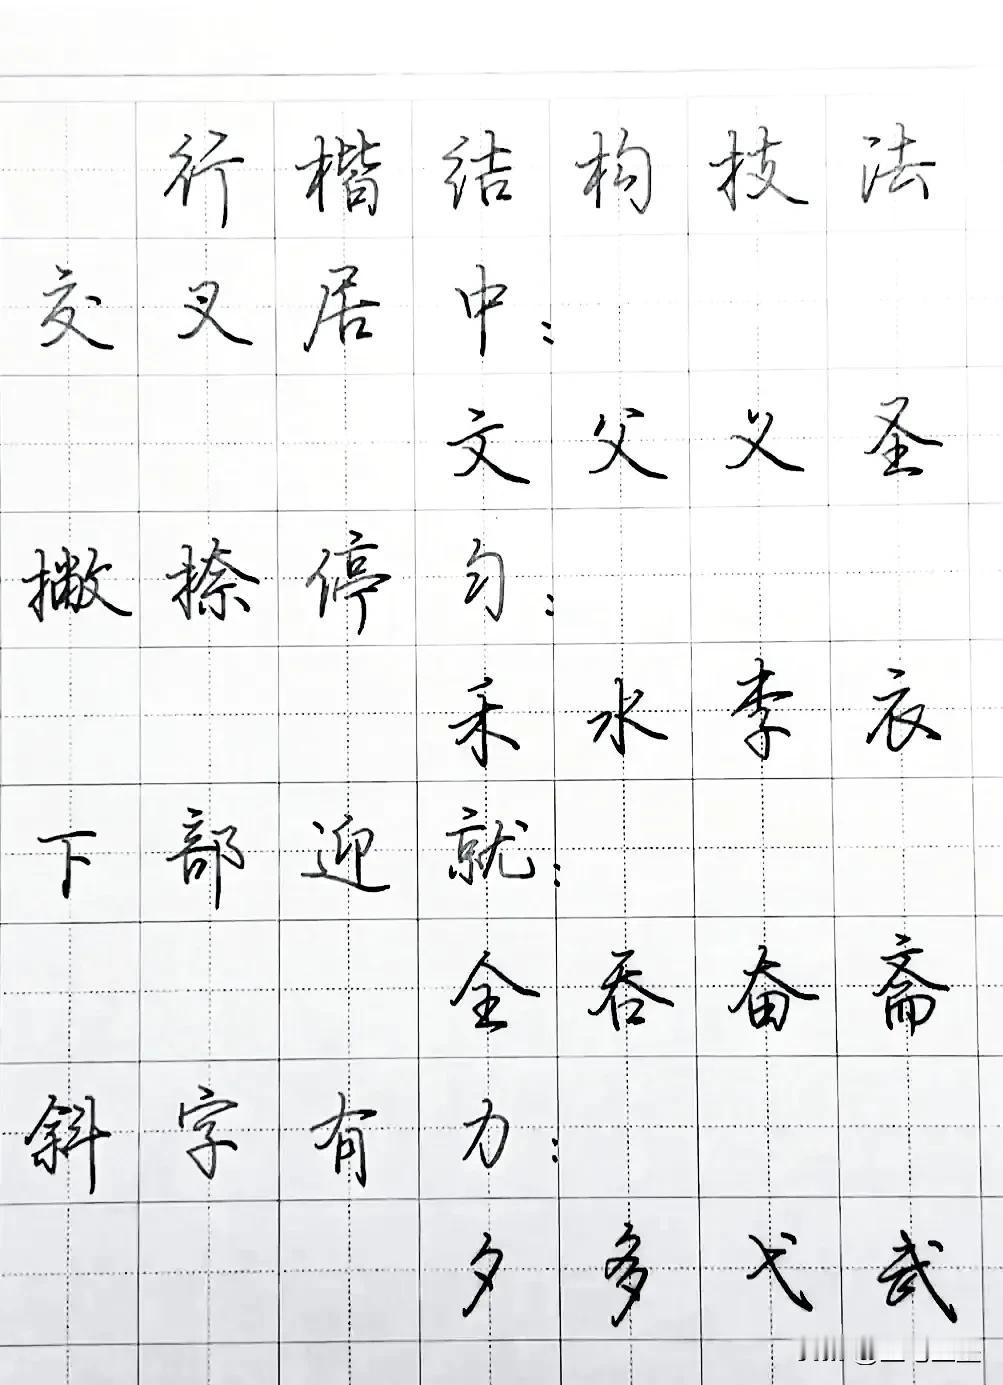 行楷结构技法
交叉居中：
文父义圣
撇捺停匀：
禾水李衣
下部迎就：
全吞奋斋
斜字有力：
夕多弋武